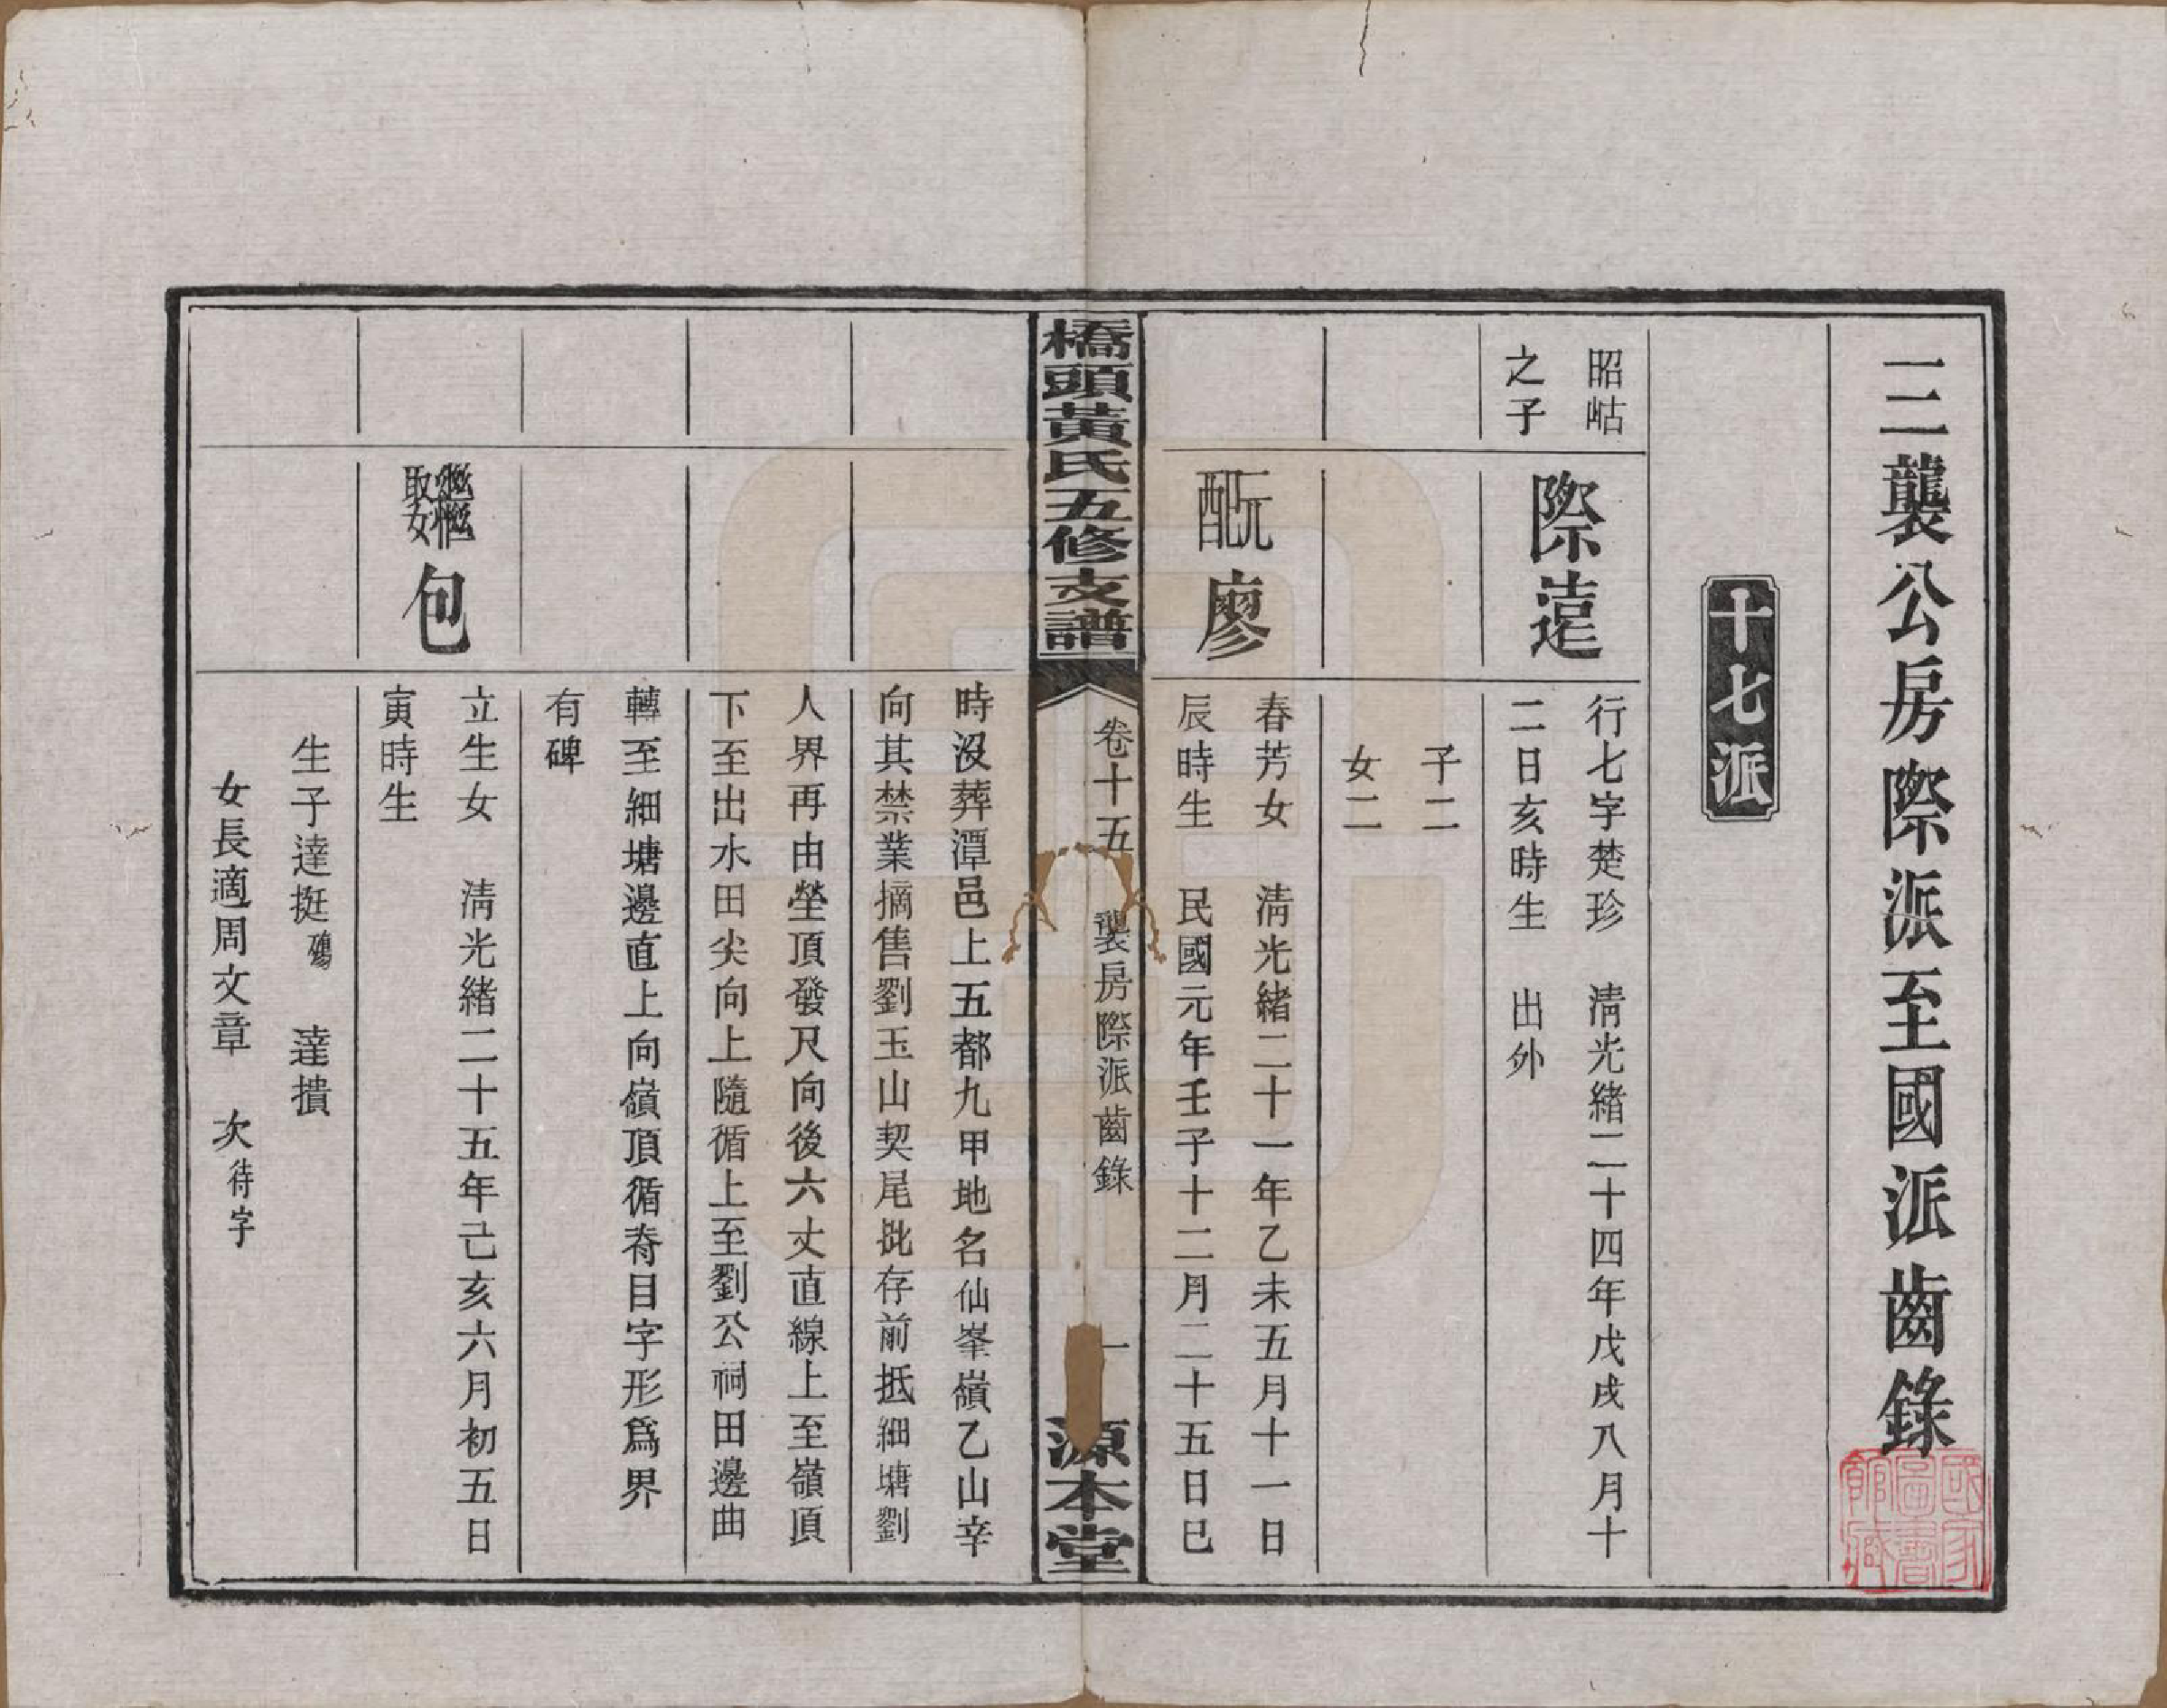 三襲公房際派至國派齒錄
十七派
昭岵
之子
際遠
行七字楚珍　清光緒二十四年戊戌八月十
二日亥時生　出外
子二
女二
元配
廖
春芳女　清光緒二十一年乙未五月十一日
辰時生　民國元年壬子十二月二十五日巳
橋頭黃氏五修支譜
卷十五　襲房際派齒錄
一
源本堂
時沒葬潭邑上五都九甲地名仙峯嶺乙山辛
向其禁業摘售劉玉山契尾批存前抵細塘劉
人界再由塋頂發尺向後六丈直線上至嶺頂
下至出水田尖向上隨循上至劉公祠田邊曲
轉至細塘邊直上向嶺頂循脊目字形爲界
有碑
繼娶
包
立生女　清光緒二十五年己亥六月初五日
寅時生
生子達挺　達撌
女長適周文章　次待字
國家圖書館藏